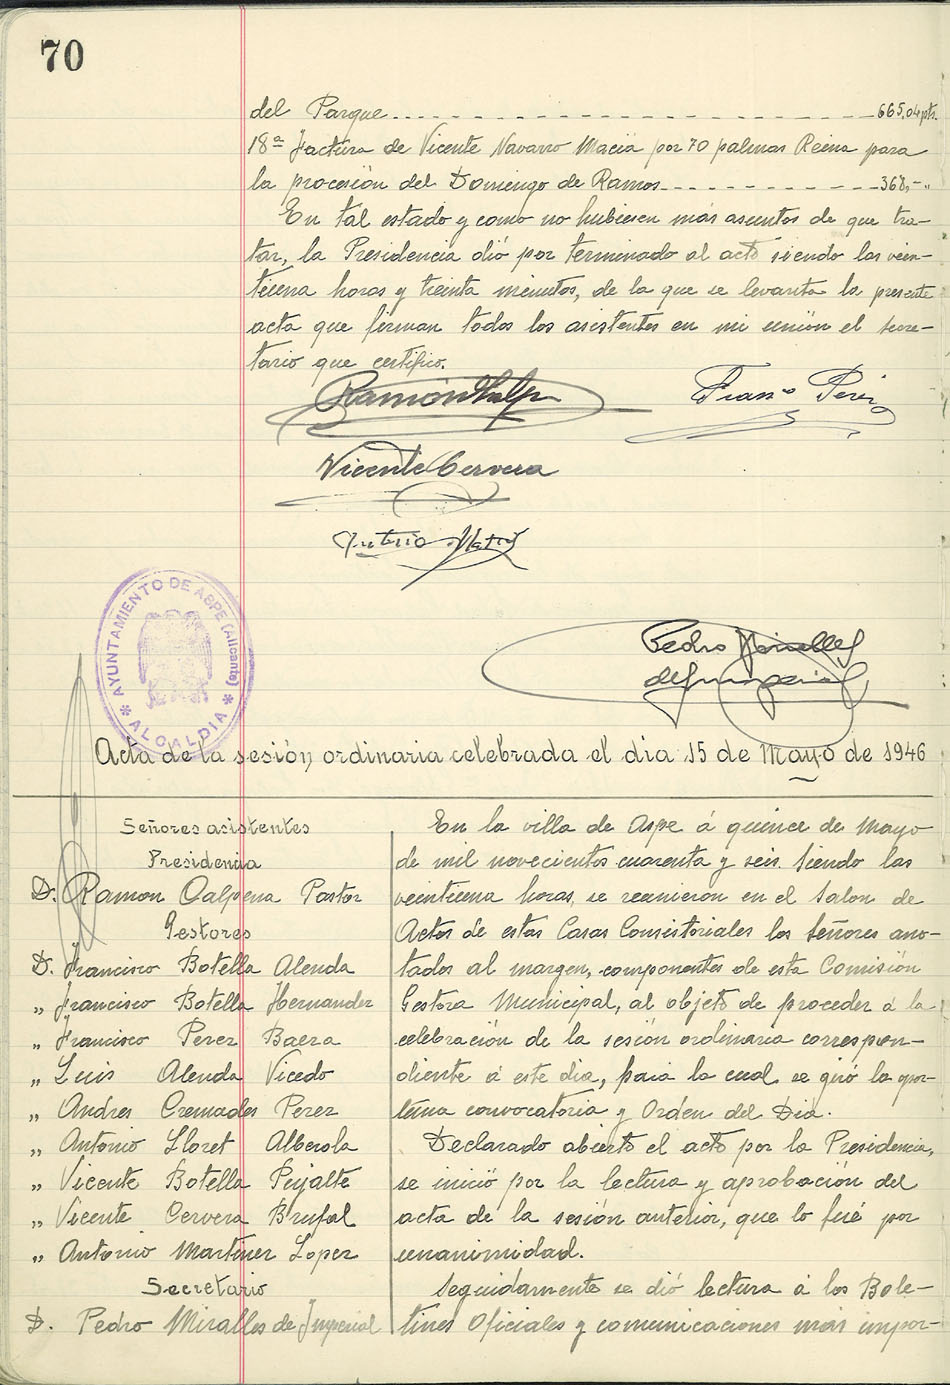 70
del Parque 665,04 pts.
18ª Factura de Vicente Navarro Maciá por 70 palmas Reina para
la procesión del Domingo de Ramos 368,-- "
En tal estado y como no hubiesen más asuntos de que tra-
tar, la Presidencia dió por terminado el acto siendo las vein-
tiuna horas y treinta minutos, de la que se levanta la presente
acta que firman todos los asistentes en mi unión el secre-
tario que certifico.
Ramón Calpena
Franco Perez
Vicente Cervera
Antonio Martinez
Pedro Miralles
de Imperial
AYUNTAMIENTO DE ASPE (Alicante)
* ALCALDIA *
Acta de la sesión ordinaria celebrada el dia 15 de Mayo de 1946
Señores asistentes
Presidencia
D. Ramon Calpena Pastor
Gestores
D. Francisco Botella Alenda
" Francisco Botella Hernandez
" Francisco Perez Baera
" Luis Alenda Vicedo
" Andres Cremades Perez
" Antonio Lloret Alberola
" Vicente Botella Pujalte
" Vicente Cervera Brufal
" Antonio Martinez Lopez
Secretario
D. Pedro Miralles de Imperial
En la villa de Aspe á quince de Mayo
de mil novecientos cuarenta y seis. Siendo las
veintiuna horas, se reunieron en el Salon de
Actos de estas Casas Consistoriales los Señores ano-
tados al margen, componentes de esta Comisión
Gestora Municipal, al objeto de proceder á la
celebración de la sesión ordinaria correspon-
diente á este dia, para la cual se giró la opor-
tuna convocatoria y Orden del Dia.
Declarado abierto el acto por la Presidencia,
se inició por la lectura y aprobación del
acta de la sesión anterior, que lo fué por
unanimidad.
Seguidamente se dió lectura á los Bole-
tines Oficiales y comunicaciones más impor-